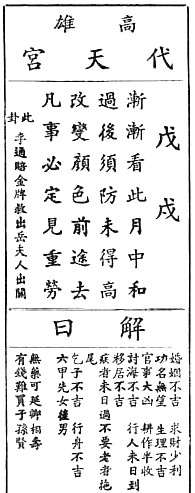 高雄
代天宮
戊戌
漸漸看此月中和
過後須防未得高
改變顏色前途去
凡事必定見重勞
此卦
李通賠金牌救出岳夫人出關
解曰
婚姻不吉　求財少利
功名無望　生理不吉
官事大凶　耕作半收
討海不吉　行人未日到
移居不吉
病者未日過不要老者拖
尾
乞子不吉　行舟不吉
六甲先女後男
無藥可延卿相壽
有錢難買子孫賢